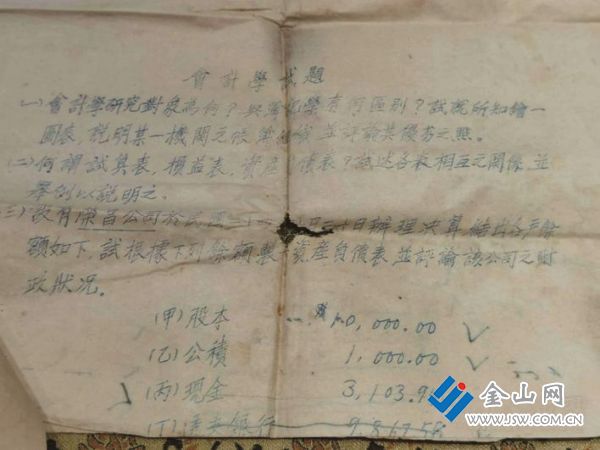 會計學試題
(一)會計學研究對象為何?與簿記學有何區別?試就所知繪一
圖表,說明某一機關之帳簿組織並評論其優劣之點。
(二)何謂試算表,損益表,資產負債表?試述各表相互之關係,並
舉例以說明之。
(三)設有榮昌公司於民國 十 月三十日辦理決算結出各戶餘
額如下,試根據下列餘額製 資產負債表並評論該公司之財
政狀況。
(甲)股本 10,000.00
(乙)公積 1,000.00
(丙)現金 3,103.9
(丁) 銀行 9,867.58
金山网
WWW.JSW.COM.CN